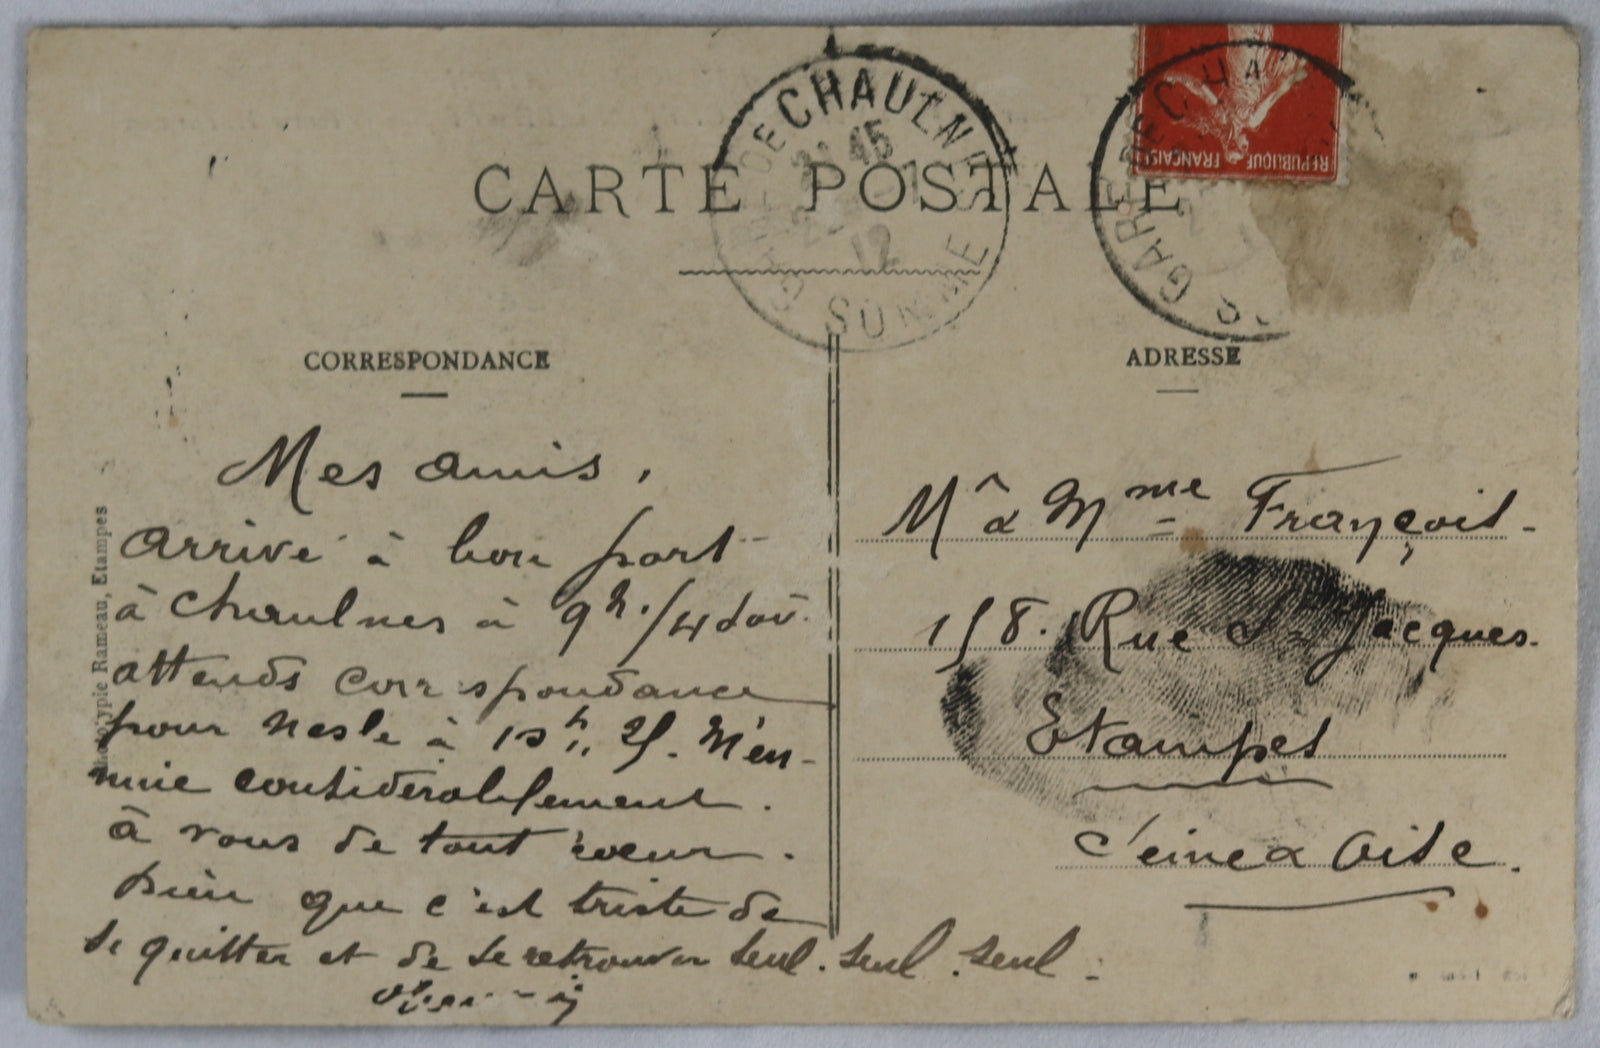 CARTE POSTALE
GARE DE CHAULNES
45
12
SOMME
GARE DE CHA
RÉPUBLIQUE FRANÇAISE
CORRESPONDANCE
ADRESSE
Mes amis,
Arrivé à bon port
à Chaulnes à 9h. 1/4
attends correspondance
pour Nesle à M'en-
nuie considérablement.
à vous de tout cœur.
Dieu que c'est triste de
se quitter et de se retrouver seul. seul. seul.
Mr & Mme François
158. Rue St Jacques.
Etampes
Seine & Oise.
Phototypie Rameau, Etampes